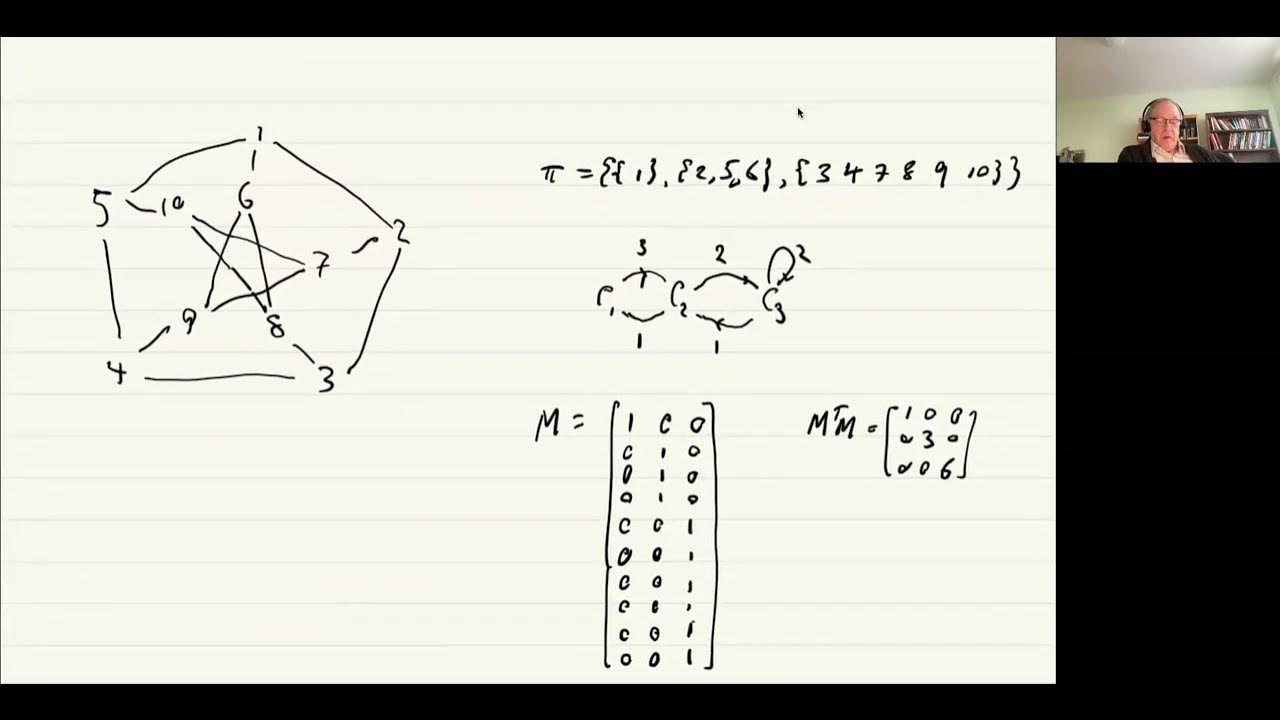 1
5 10 6
7 2
9 8
4 3
π = {{1}, {2,5,6}, {3 4 7 8 9 10}}
3 2 2
C₁ C₂ C₃
1 1
M = [1 0 0
0 1 0
0 1 0
0 1 0
0 0 1
0 0 1
0 0 1
0 0 1
0 0 1
0 0 1]
MᵀM = [1 0 0
0 3 0
0 0 6]